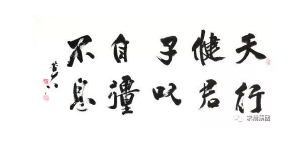 天行
健君
子以
自强
不息